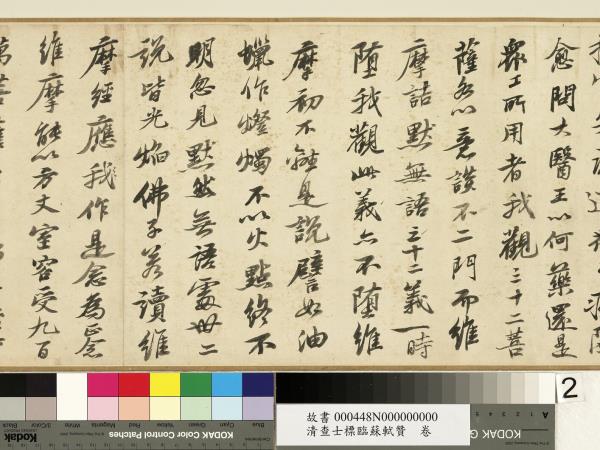 愈問大醫王以何藥還是
眾工所用者我觀三十二菩
薩各以意談不二門而維
摩詰默無語三十二義一時
墮我觀此義亦不墮維
摩初不離是說譬如油
蠟作燈燭不以火點終不
明忽見默然無語處卅二
說皆光焰佛子若讀維
摩經應我作是念為正念
維摩能以方丈室容受九百
萬菩薩
2
故書 000448N000000000
清查士標臨蘇軾贊 卷
KODAK Color Control Patches
Kodak
Blue Cyan Green Yellow Red Magenta White 3/Color Black
A